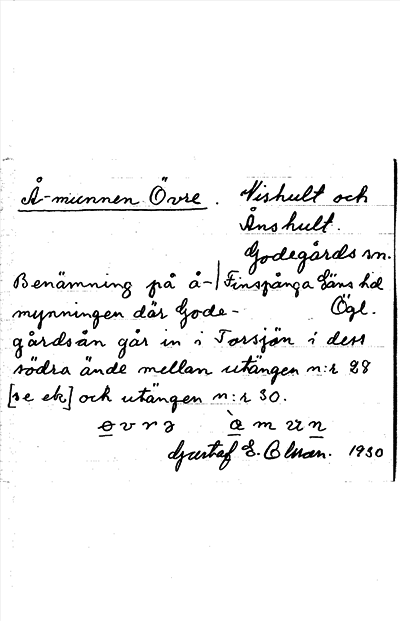 Å-munnen Övre. Vishult och
Ånshult.
Godegårds sn.
Benämning på å- Finspånga läns hd
mynningen där Gode- Ögl.
gårdsån går in i Torsjön i dess
södra ände mellan utängen n:r 28
[se ek] och utängen n:r 30.
Gustaf E. Olsson. 1930